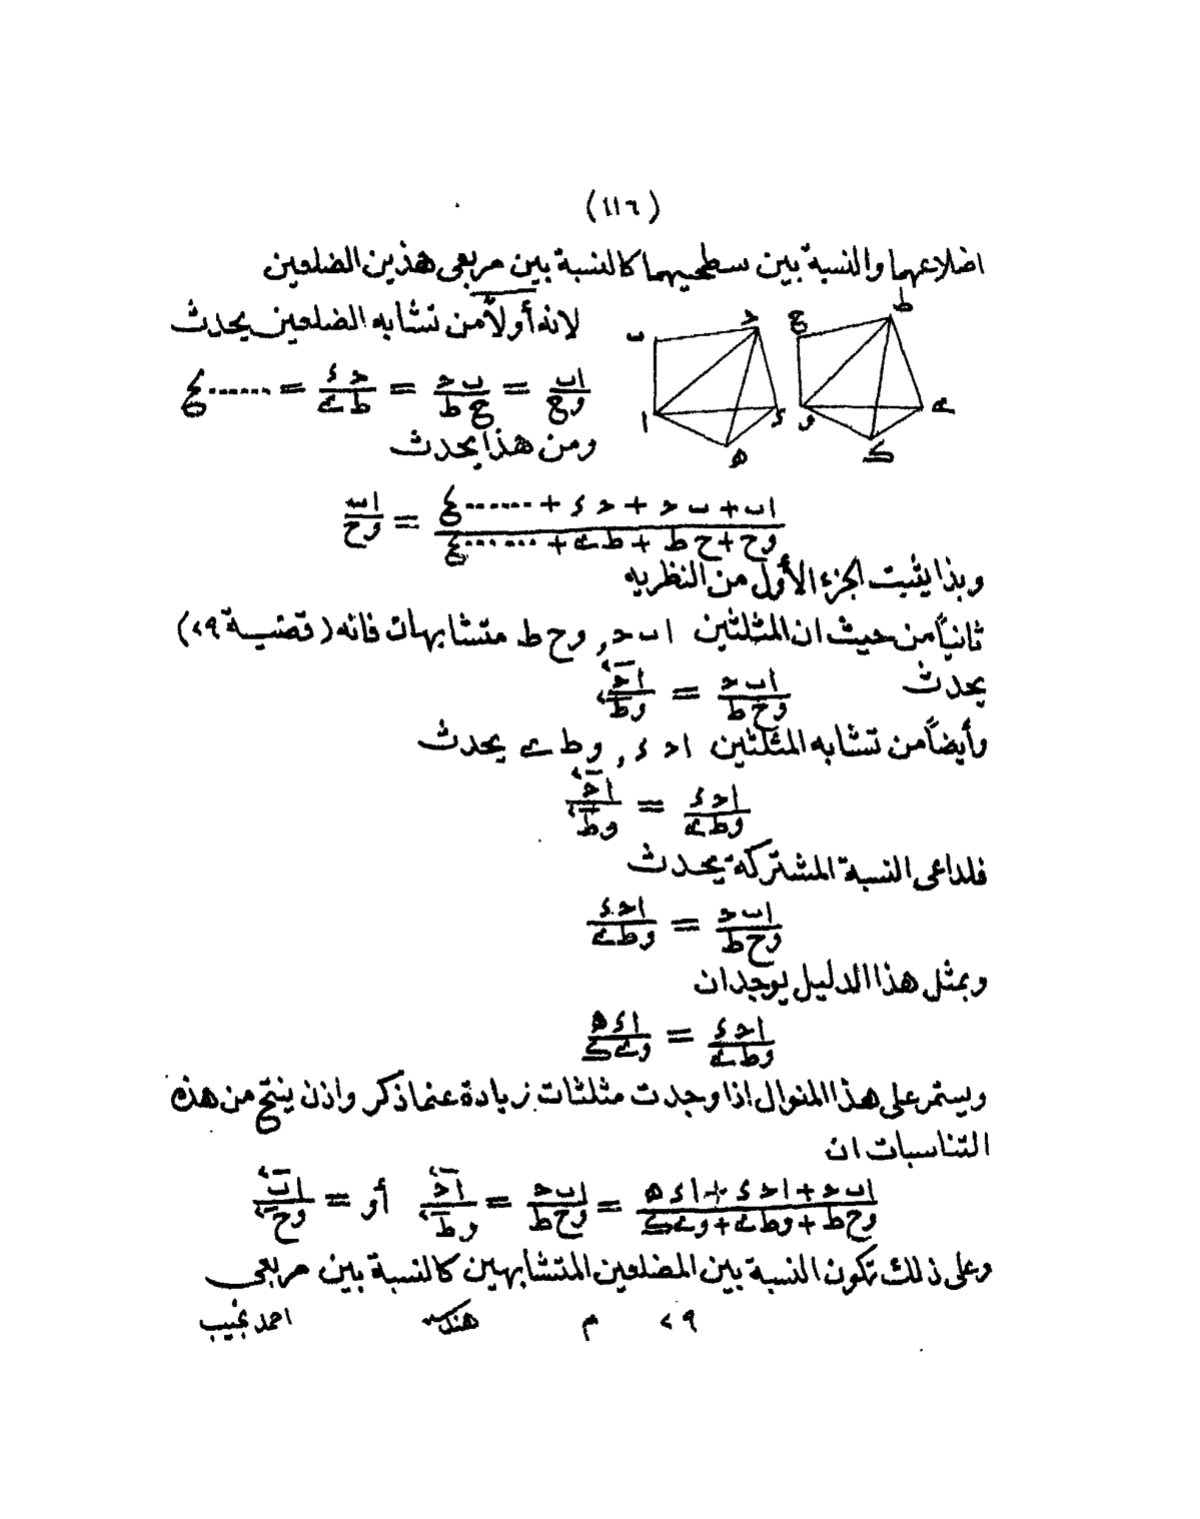 (١١٦)
اضلاعهما والنسبة بين سطحيهما كالنسبة بين مربعى هذين الضلعين
لانه أولاً من تشابه الضلعين يحدث
اب/وح = بحـ/حط = حـد/طے = ......ع
ومن هذا يحدث
(اب + بحـ + حـد + ......ع)/(وح + حط + طے + ......ع) = اب/وح
وبذا يثبت الجزء الأول من النظريه
ثانياً من حيث ان المثلثين ابحـ , وحط متشابهان فانه (قضية ٢٩)
يحدث
ابحـ/وحط = احـ٢/وط٢
وأيضاً من تشابه المثلثين احـد , وطے يحدث
احـد/وطے = احـ٢/وط٢
فلداعى النسبة المشتركة يحدث
ابحـ/وحط = احـد/وطے
وبمثل هذا الدليل يوجد ان
احـد/وطے = اده/وےك
ويستمر على هذا المنوال اذا وجدت مثلثات زيادة عنما ذكر واذن ينتج من هذه
التناسبات ان
(ابحـ + احـد + اده)/(وحط + وطے + وےك) = ابحـ/وحط = احـ٢/وط٢ أو = اب٢/وح٢
وعلى ذلك تكون النسبة بين المضلعين المتشابهين كالنسبة بين مربعى
٢٩ م هندسه احمد نجيب
ب حـ ح ط
ا د و ے
ه ك